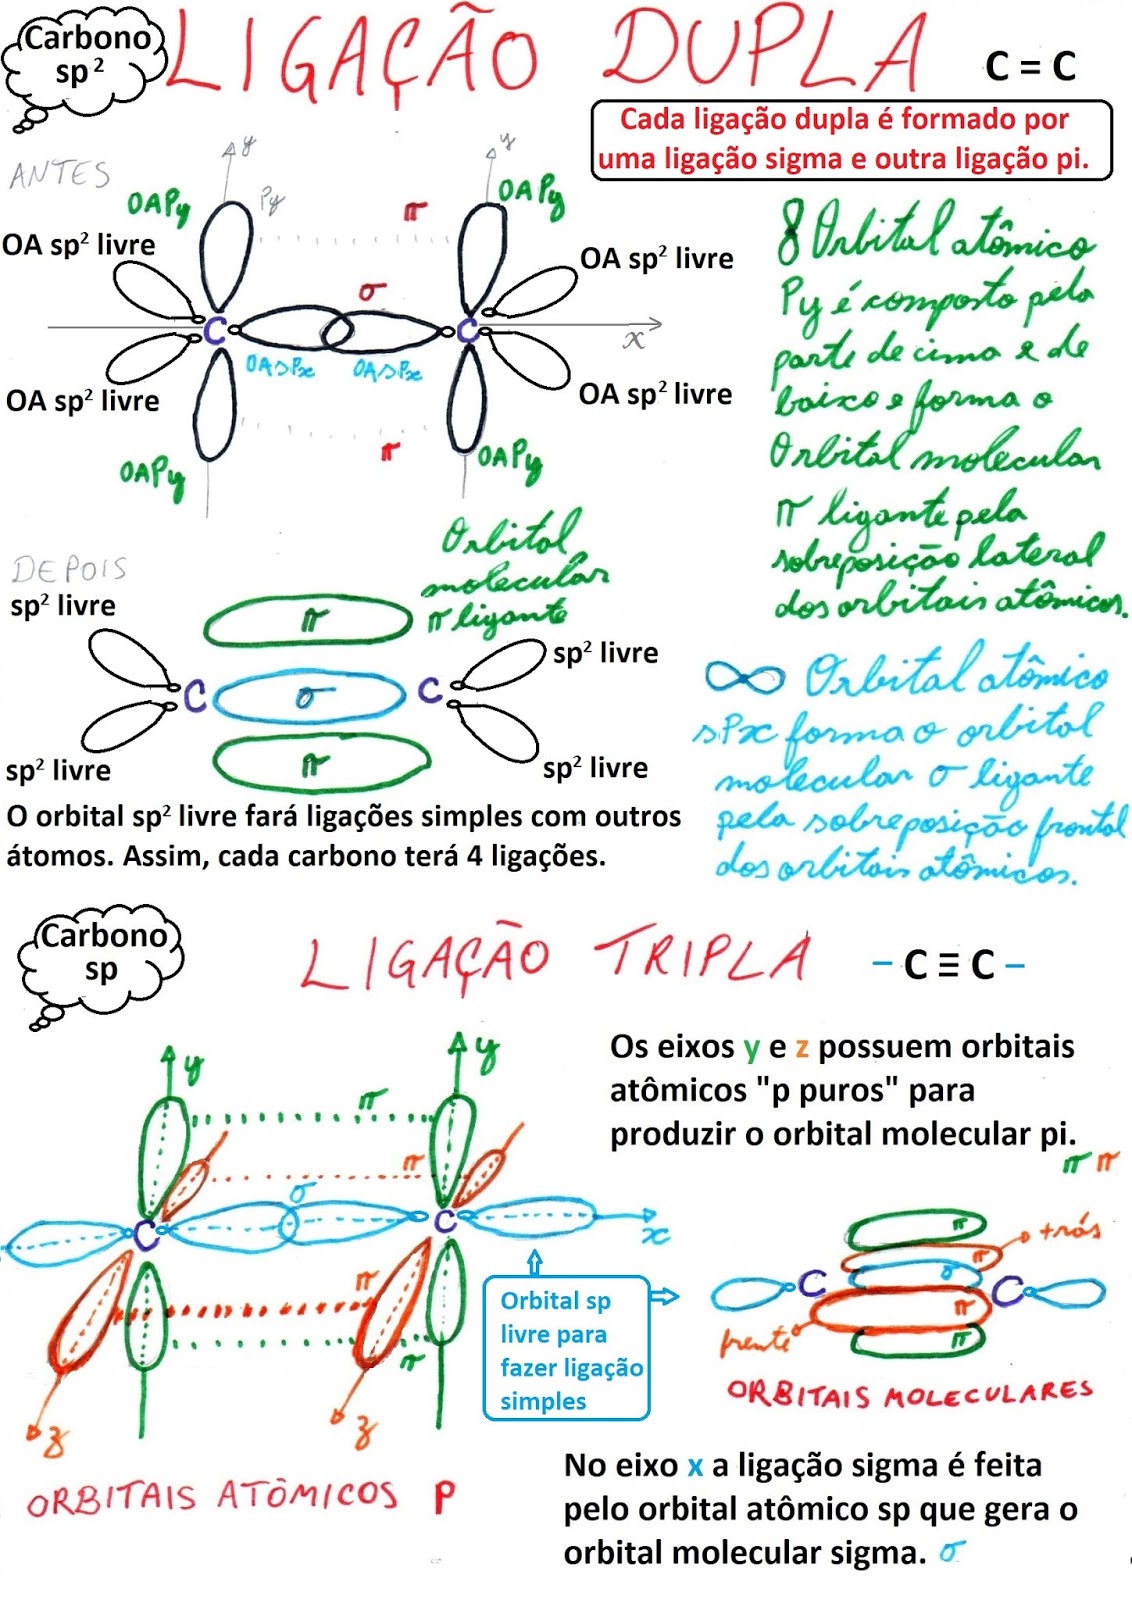 Carbono
sp²
LIGAÇÃO DUPLA
C = C
Cada ligação dupla é formado por
uma ligação sigma e outra ligação pi.
ANTES
y
y
OAPy
Py
π
OAPy
OA sp² livre
OA sp² livre
σ
C
C
x
OASPx
OASPx
OA sp² livre
OA sp² livre
π
OAPy
OAPy
8 Orbital atômico
Py é composto pela
parte de cima e de
baixo e forma o
Orbital molecular
π ligante pela
sobreposição lateral
dos orbitais atômicos.
DEPOIS
Orbital
molecular
π ligante
sp² livre
π
sp² livre
C
σ
C
sp² livre
π
sp² livre
∞ Orbital atômico
sPx forma o orbital
molecular σ ligante
pela sobreposição frontal
dos orbitais atômicos.
O orbital sp² livre fará ligações simples com outros
átomos. Assim, cada carbono terá 4 ligações.
Carbono
sp
LIGAÇÃO TRIPLA
– C ≡ C –
y
y
π
π
σ
C
C
x
π
π
z
z
ORBITAIS ATÔMICOS P
Os eixos y e z possuem orbitais
atômicos "p puros" para
produzir o orbital molecular pi.
π π
Orbital sp
livre para
fazer ligação
simples
π
trás
π
σ
C
C
π
frente
π
ORBITAIS MOLECULARES
No eixo x a ligação sigma é feita
pelo orbital atômico sp que gera o
orbital molecular sigma. σ